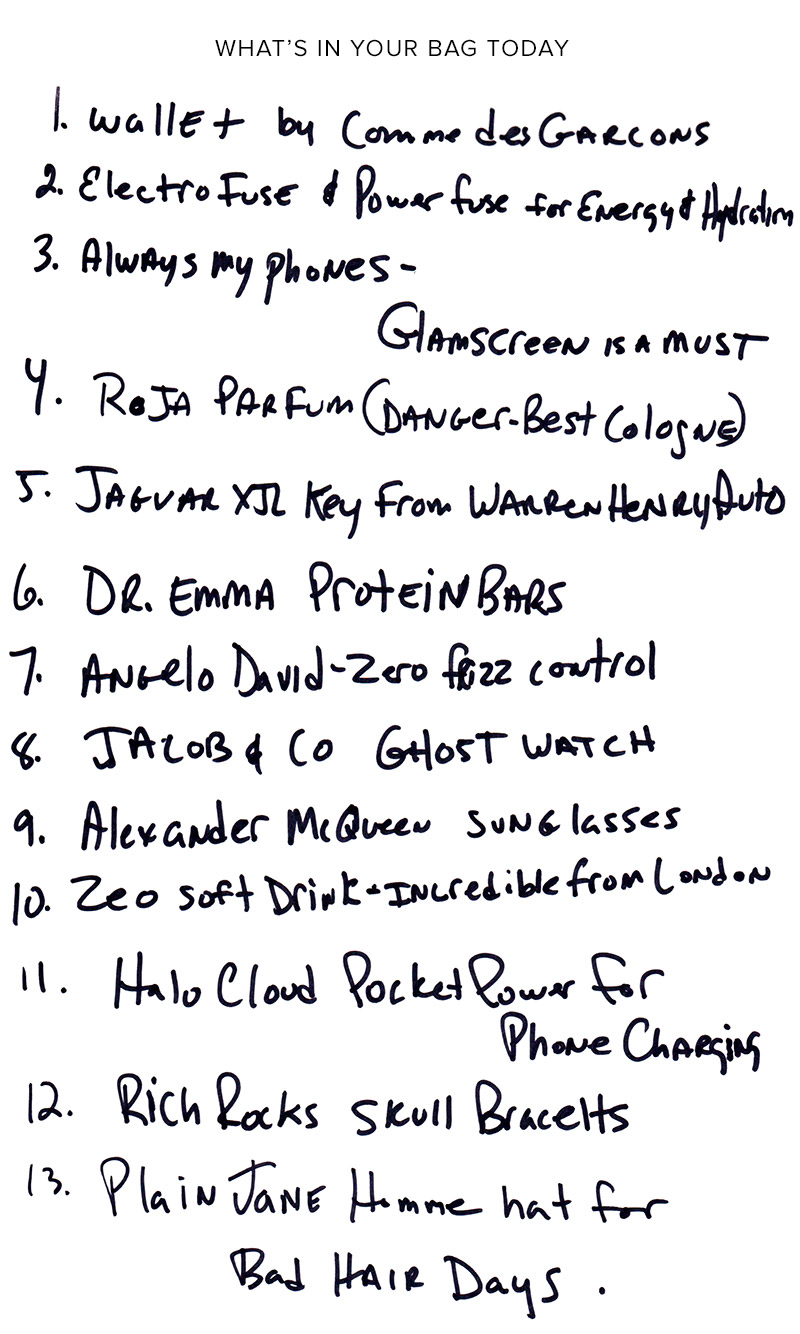 WHAT'S IN YOUR BAG TODAY
1. Wallet by Comme des GARCONS
2. Electro Fuse & Power fuse for Energy & Hydration
3. Always my phones -
Glamscreen is a must
4. Roja Parfum (Danger-Best Cologne)
5. Jaguar XJL Key from Warren Henry Auto
6. DR. EMMA Protein BARS
7. Angelo David - Zero frizz control
8. JACOB & CO GHOST WATCH
9. Alexander McQueen sunglasses
10. Zeo soft Drink - Incredible from London
11. Halo Cloud Pocket Power for
Phone Charging
12. Rich Rocks skull Bracelts
13. Plain Jane Homme hat for
Bad HAIR Days.